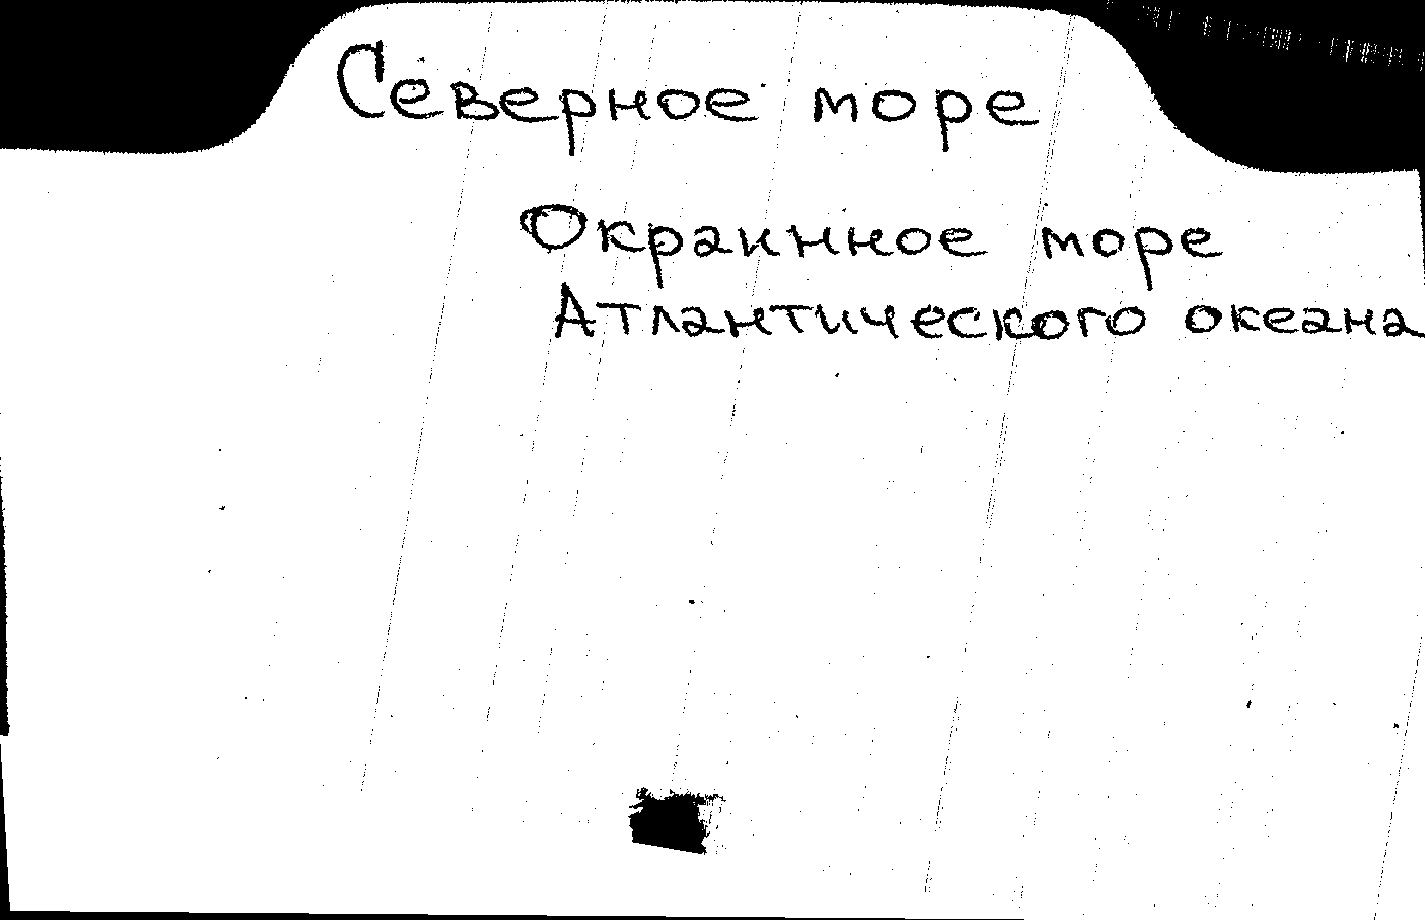 Северное море
Окраинное море
Атлантического океана